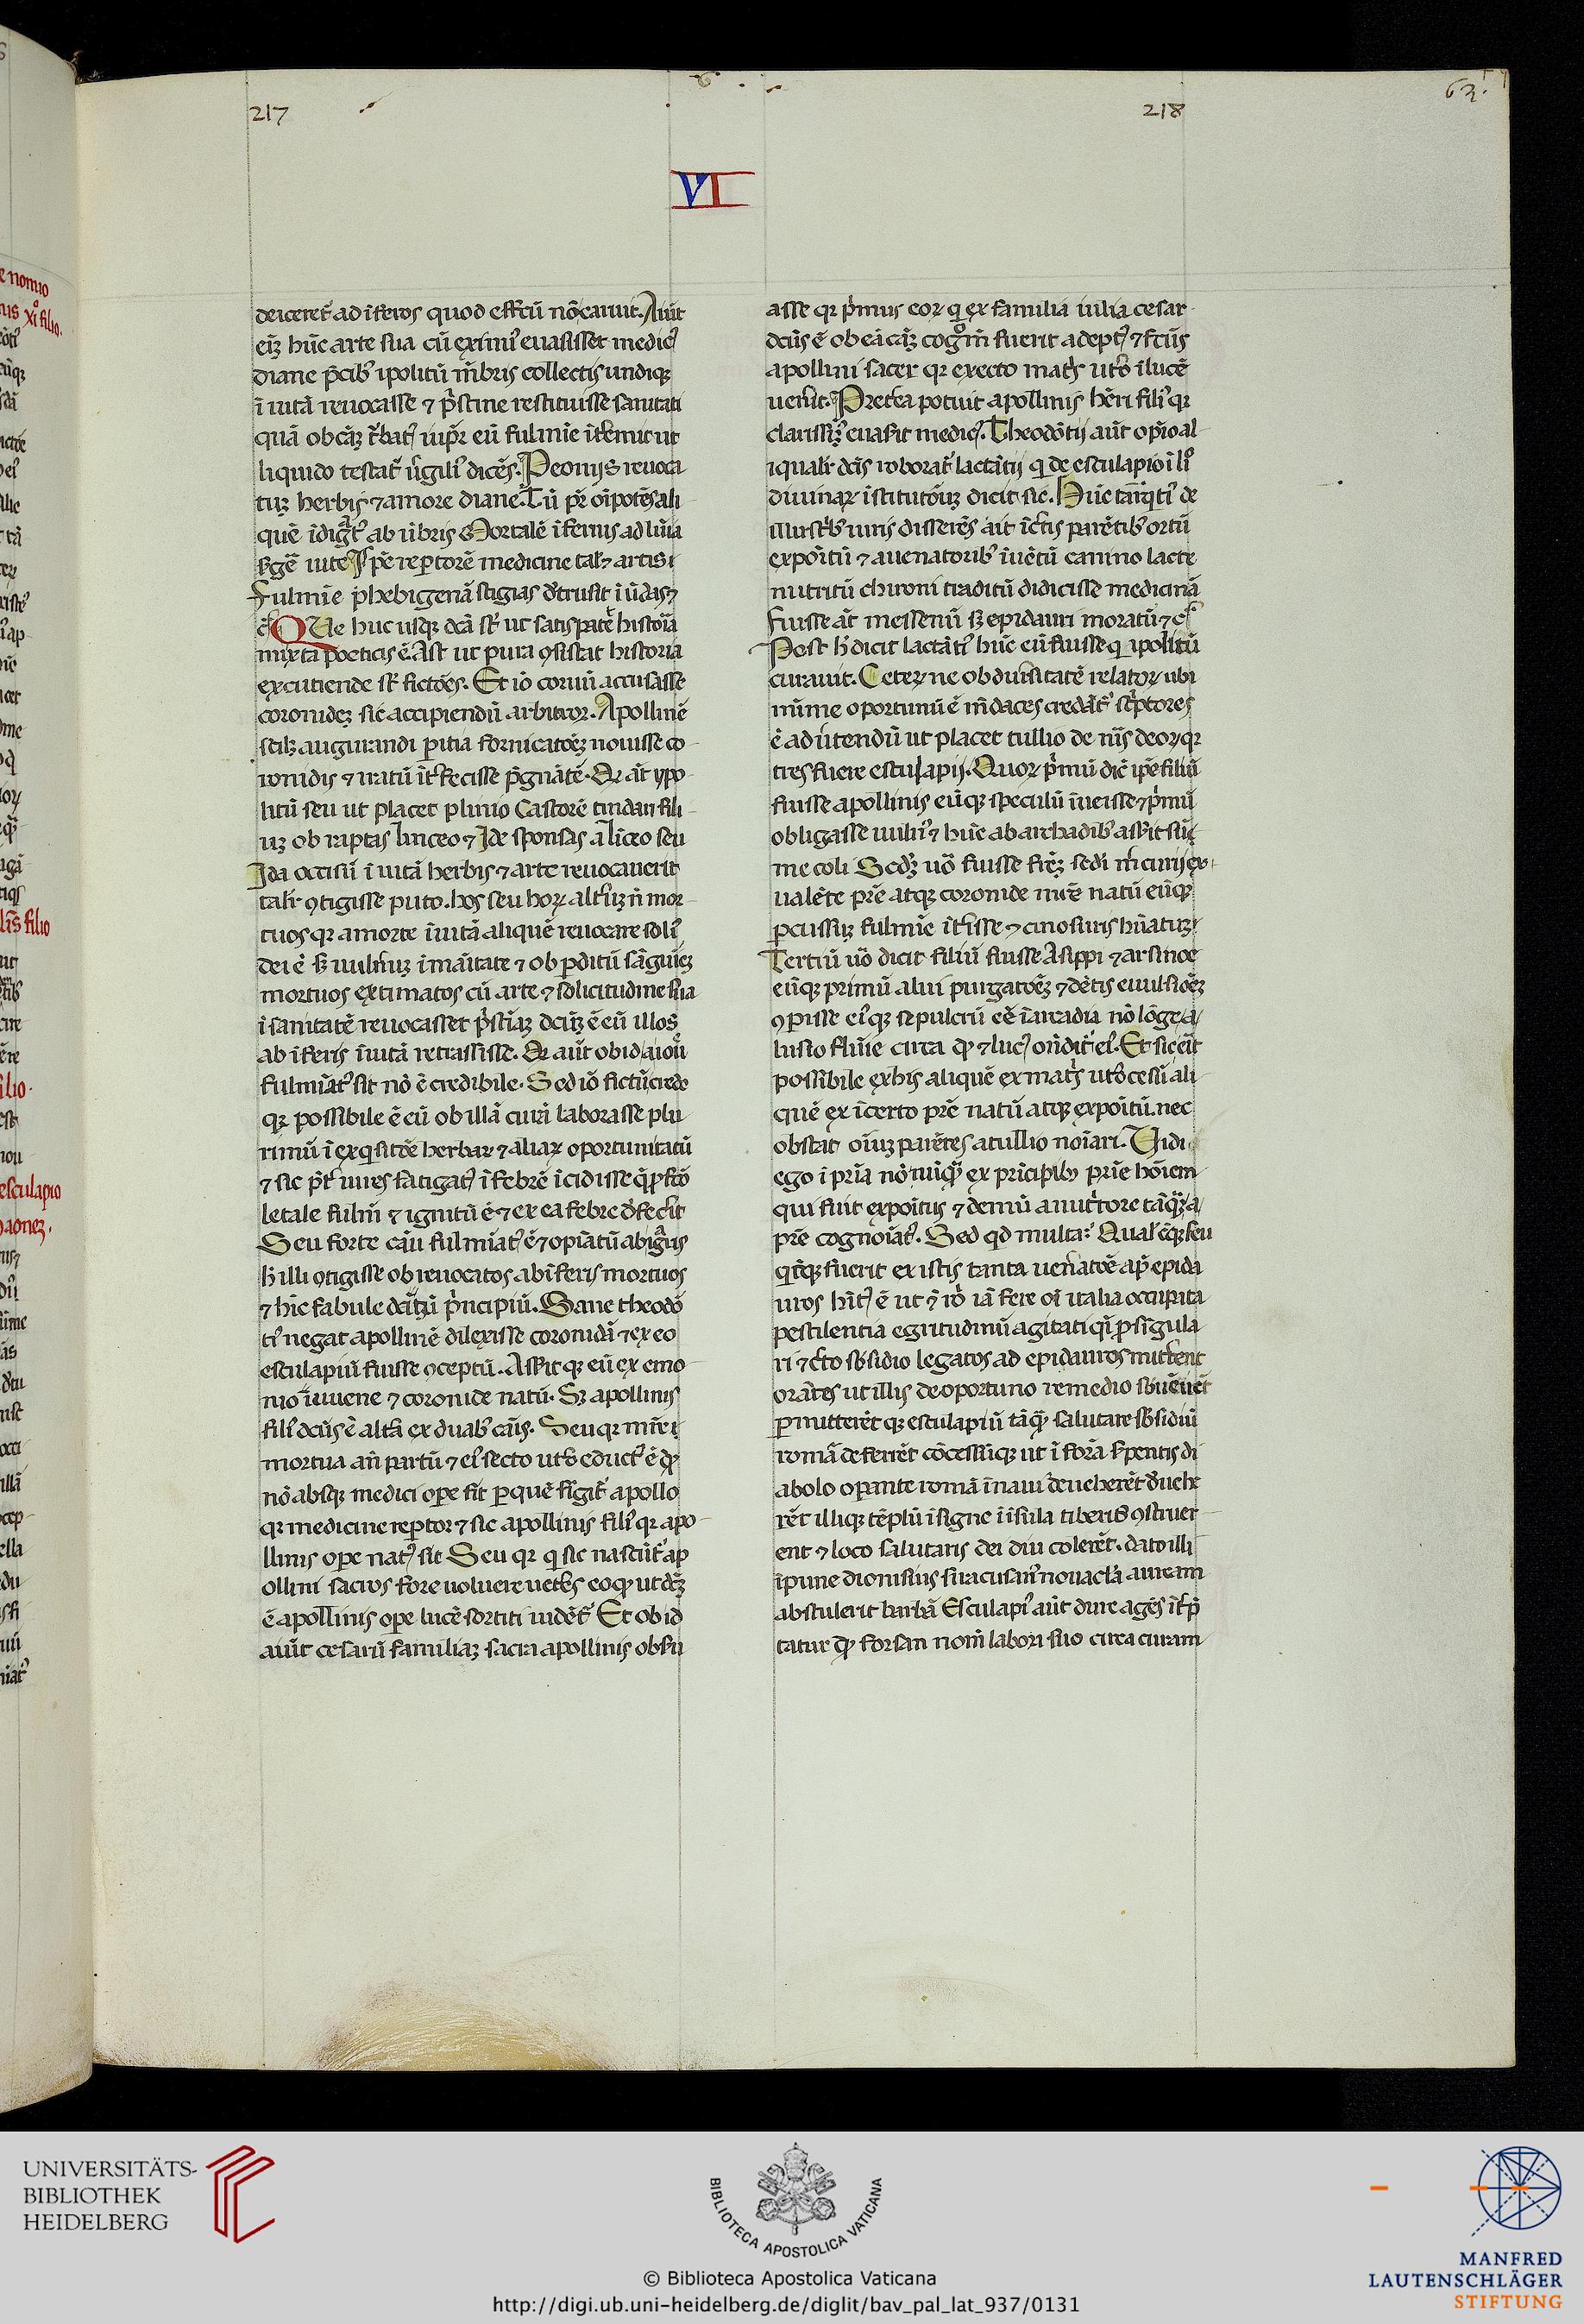 217
218
63.
VI
deiceret̃ ad ĩferos quod effc̃ũ nõ caruit. Aiũt
eiz hũc arte sua cũ eximiꝰ euasisset medicꝰ
diane p̃cibꝫ ipolitũ mẽbris collectis undiqꝫ
ĩ uitã reuocasse ⁊ p̃stine restituisse sanitati
quã ob cãz t̃batꝰ iupr̃ eũ fulmie ĩtẽmit ut
liquido testat̃ ũgiliꝰ dicẽs. Peonijs reuoca
tuz herbis ⁊ amore diane. Tũ pr̃ oĩpotẽs ali
quẽ ĩdig̃tꝰ ab ũbris Mortalẽ ĩfernis ad lũĩa
s̃gẽ uite Ip̃e rep̃torẽ medicine talꝫ ⁊ artis
Fulmĩe phebigenã stigias d̃trusit ĩ ũdas ⁊
c̃ Que huc usqꝫ dc̃ã sr̃ ut satis patẽ historia
mixta poeticis ẽ. Ast ut pura ꝯsistat historia
excutiende sr̃ fictões. Et iõ coruũ accusasse
coronidez sic accipiendũ arbitror. Apollinẽ
scilꝫ augurandi p̲itia fornicatõez nouisse co
ronidis ⁊ iratũ ĩt̃fecisse p̃gnãtẽ. Qꝛ aũt ypo
litũ seu ut placet plinio Castorẽ tindari fili
uz ob raptas linceo ⁊ Ide sponsas a lĩceo seu
Ida occisũ ĩ uitã herbis ⁊ arte reuocauerit
talr̃ ꝯtigisse puto. hos seu hoꝝ alt̃uz nõ mor
tuos qꝛ a morte ĩ uitã aliquẽ reuocare soliꝰ
dei ẽ sꝫ uulnuz ĩmãitate ⁊ ob p̲ditũ sãguiez
mortuos extimatos cũ arte ⁊ solicitudine sua
ĩ sanitatẽ reuocasset p̃stĩaz dc̃ũz ẽ eũ illos
ab ĩferis ĩ uitã retraxisse. Qꝛ aũt ob id a ioue
fulmĩatꝰ sit nõ ẽ credibile. Sed iõ fictũ crede
qꝛ possibile ẽ eũ ob illã curã laborasse plu
rimũ ĩ exq̇sitõe herbaꝝ ⁊ aliaꝝ oportunitatũ
⁊ sic p̃t̃ uires fatigatꝰ ĩ febrẽ ĩcidisse q̃ p̲fcõ
letale fulm̃ ⁊ ignitũ ẽ ⁊ ex ea febre d̃fecit
Seu forte cãu fulmĩatꝰ ẽ ⁊ opĩatũ ab ignaris
h̃ illi ꝯtigisse ob reuocatos ab ĩferis mortuos
⁊ hĩc fabule datũ p̃ncipiũ. Sane theodõ
tiꝰ negat apollinẽ dilexisse coronidã ⁊ ex eo
esculapiũ fuisse ꝯceptũ. Asserit qꝫ eũ ex emo
nio iuuene ⁊ coronide natũ. Sꝫ apollinis
filiꝰ dc̃ũs ẽ alt̃a ex duabꝫ cãis. Seu qꝛ mr̃e ĩ
mortua añ partũ ⁊ eiꝰ secto ut̃o eductꝰ ẽ qꝫ
nõ absqꝫ medici ope fit p̲ quẽ fĩgit̃ apollo
qꝛ medicine rep̃tor ⁊ sic apollinis filiꝰ qꝛ apo
llinis ope natꝰ sit Seu qꝛ q̇ sic nascũt̃ ap
ollini sacros fore uoluere uetẽs eo qꝫ ut dꝫ
ẽ apollinis ope lucẽ sortiti uidẽt̃ Et ob id
aiũt cesarũ familiaz sacra apollinis obsũ
asse qꝛ p̃mus eoꝝ q̇ ex familia iulia cesar
dc̃ũs ẽ ob eã cãz cognom̃ fuerit adeptꝰ ⁊ fc̃ũs
apollini sacer qꝛ execto mat̃s ut̃o ĩ lucẽ
uenit. Preterea potuit apollinis hẽri filiꝰ qꝛ
clarissiꝰ euasit medicꝰ. Theodõtij aũt opio al
iqualr̃ dc̃is roborat̃ lactãtij q̇ de esculapio ĩ liꝰ
diuinaꝝ ĩstitutõuz dicit sic. Hũc tarq̇tiꝰ de
illustribꝫ uiris disserẽs ait ĩc̃tis parẽtibꝫ ortũ
expoitũ ⁊ a uenatoribꝫ ĩuẽtũ canino lacte
nutritũ chironi traditũ didicisse medicinã
fuisse aũt messenũ sꝫ epidauri moratũ ⁊ c̃
Post h̃ dicit lactãtiꝰ hũc eũ fuisse q̇ ipolitũ
curauit. Ceteꝝ ne ob diuersitatẽ relatoꝝ ubi
mĩme oportunũ ẽ mẽdaces credãt̃ sc̃ptores
ẽ aduertendũ ut placet tullio de nãis deoꝝ qꝛ
tres fuere esculapij. Quoꝝ p̃mũ dic̃ ip̃e filiũ
fuisse apollinis eũqꝫ speculũ ĩuẽisse ⁊ p̃mũ
obligasse uulnꝰ ⁊ hũc ab archadibꝫ asserit sũ
me coli Scd̃z uõ fuisse fr̃ez sc̃di m̃curij ex
ualẽte pr̃e atqꝫ coronide mr̃e natũ eũqꝫ
p̲cussuz fulmĩe ĩt̃isse ⁊ cinosuris hũatuz
Tertiũ uõ dicit filiũ fuisse Asippi ⁊ arsinoe
eũqꝫ primũ alui purgatõez ⁊ dẽtis euulsiõez
ꝯp̲isse eiꝰqꝫ sepulcrũ eẽ ĩ arcadia nõ lõge a
lusio fluĩe circa qꝫ ⁊ lucꝰ oñdit̃ eiꝰ. Et sic eũt
possibile ex his aliquẽ ex mat̃s ut̃o cesũ ali
quẽ ex ĩcerto pr̃e natũ atqꝫ expoitũ. nec
obstat oĩuz parẽtes a tullio noĩari. Vidi
ego ĩ pr̃ia nõ nũq̃ ex prĩcipibꝫ pr̃ie hoĩem
qui fuit expoitus ⁊ demũ a nut̃tore tãq̃ a
pr̃e cognoĩatꝰ. Sed qd̃ multa? Qualẽcũqꝫ seu
q̇cũqꝫ fuerit ex istis tanta uen̾atõe ap̃ epida
uros hitꝰ ẽ ut ⁊ rõ iã fere oĩ italia occupata
pestilentia egritudinũ agitati q̇ p̲ sĩgula
ri ⁊ c̃to sb̃sidio legatos ad epidauros mitterent
orãtes ut illis de oportuno remedio sb̃ueniret
p̲mitterẽt qꝫ esculapiũ tãq̃ salutare sb̃sidiũ
romã deferrẽt cõcessũqꝫ ut ĩ forã s̃pentis di
abolo op̲ante romã ĩ naui deueherẽt d̃uehe
rẽt illiqꝫ tẽplũ ĩsigne ĩ ĩsula tiberis ꝯstruer
ent ⁊ loco salutaris dei diu colerẽt. dato illi
ĩpune dionisius siracusanꝰ nouacl̃a auream
abstulerit barbã Esculapiꝰ aũt dure agẽs ĩt̃p̃
tatur qꝫ forsan nom̃ labori suo circa curam
e nomio
xiº filio.
filio
esculapio
UNIVERSITÄTS-
BIBLIOTHEK
HEIDELBERG
BIBLIOTECA APOSTOLICA VATICANA
© Biblioteca Apostolica Vaticana
http://digi.ub.uni-heidelberg.de/diglit/bav_pal_lat_937/0131
MANFRED
LAUTENSCHLÄGER
STIFTUNG